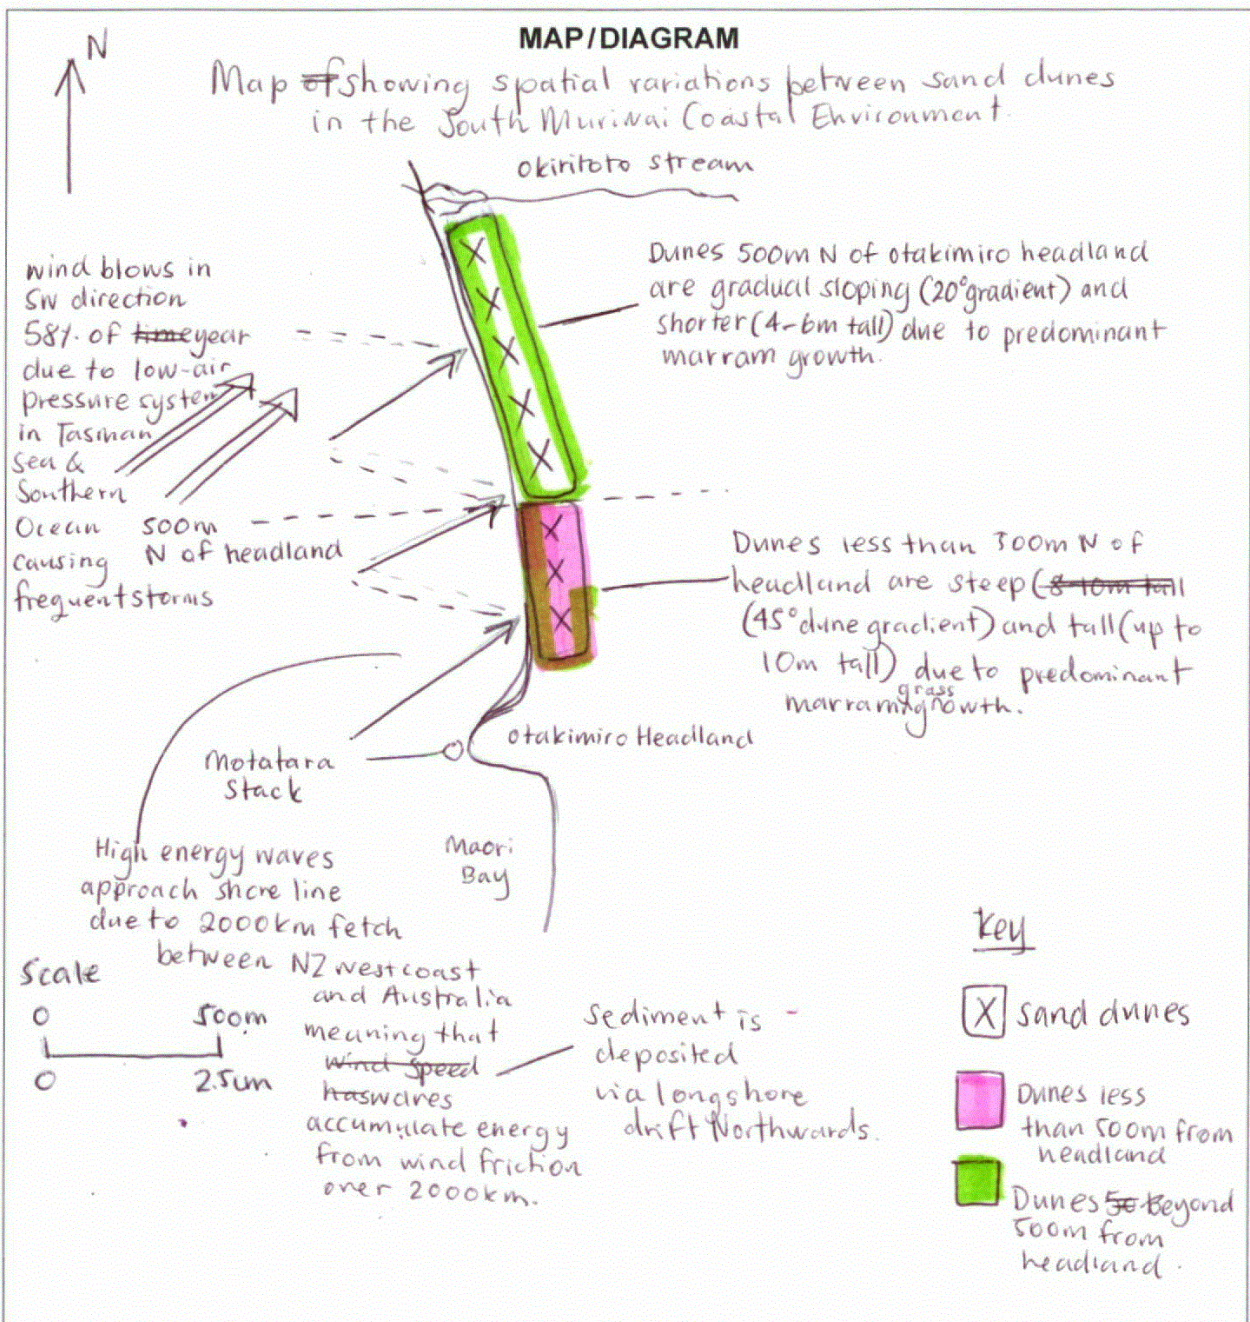 MAP/DIAGRAM
N
Map of showing spatial variations between sand dunes
in the South Muriwai Coastal Environment.
Okiritoto stream
wind blows in
SW direction
58% of time year
due to low-air
pressure system
in Tasman
Sea &
Southern
Ocean
causing
frequent storms
Dunes 500m N of otakimiro headland
are gradual sloping (20° gradient) and
shorter (4-6m tall) due to predominant
marram growth.
500m
N of headland
Dunes less than 500m N of
headland are steep (8-10m tall
(45° dune gradient) and tall (up to
10m tall) due to predominant
marram grass growth.
Otakimiro Headland
Motatara
Stack
Maori
Bay
High energy waves
approach shore line
due to 2000km fetch
between NZ west coast
and Australia
meaning that
wind speed
has waves
accumulate energy
from wind friction
over 2000km.
Sediment is
deposited
via longshore
drift Northwards.
Scale
0 500m
0 2.5cm
Key
X sand dunes
Dunes less
than 500m from
headland
Dunes 50 Beyond
500m from
headland.